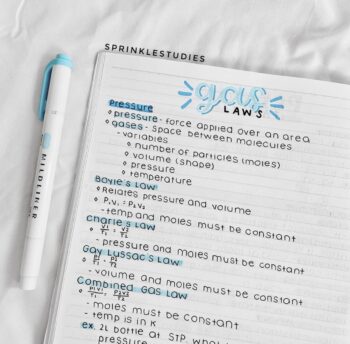 SPRINKLESTUDIES
gas
LAWS
Pressure
◊ pressure - force applied over an area
◊ gases - space between molecules
- variables
◊ number of particles (moles)
◊ volume (shape)
◊ pressure
◊ temperature
Boyle's Law
◊ Relates pressure and volume
◊ P₁V₁ = P₂V₂
- temp and moles must be constant
Charle's Law
◊ V₁/T₁ = V₂/T₂
- pressure and moles must be constant
Gay Lussac's Law
◊ P₁/T₁ = P₂/T₂
- volume and moles must be constant
Combined Gas Law
◊ P₁V₁/T₁ = P₂V₂/T₂
- moles must be constant
- temp is in K
ex. 2L bottle at STP. what
pressure
MILDLINER